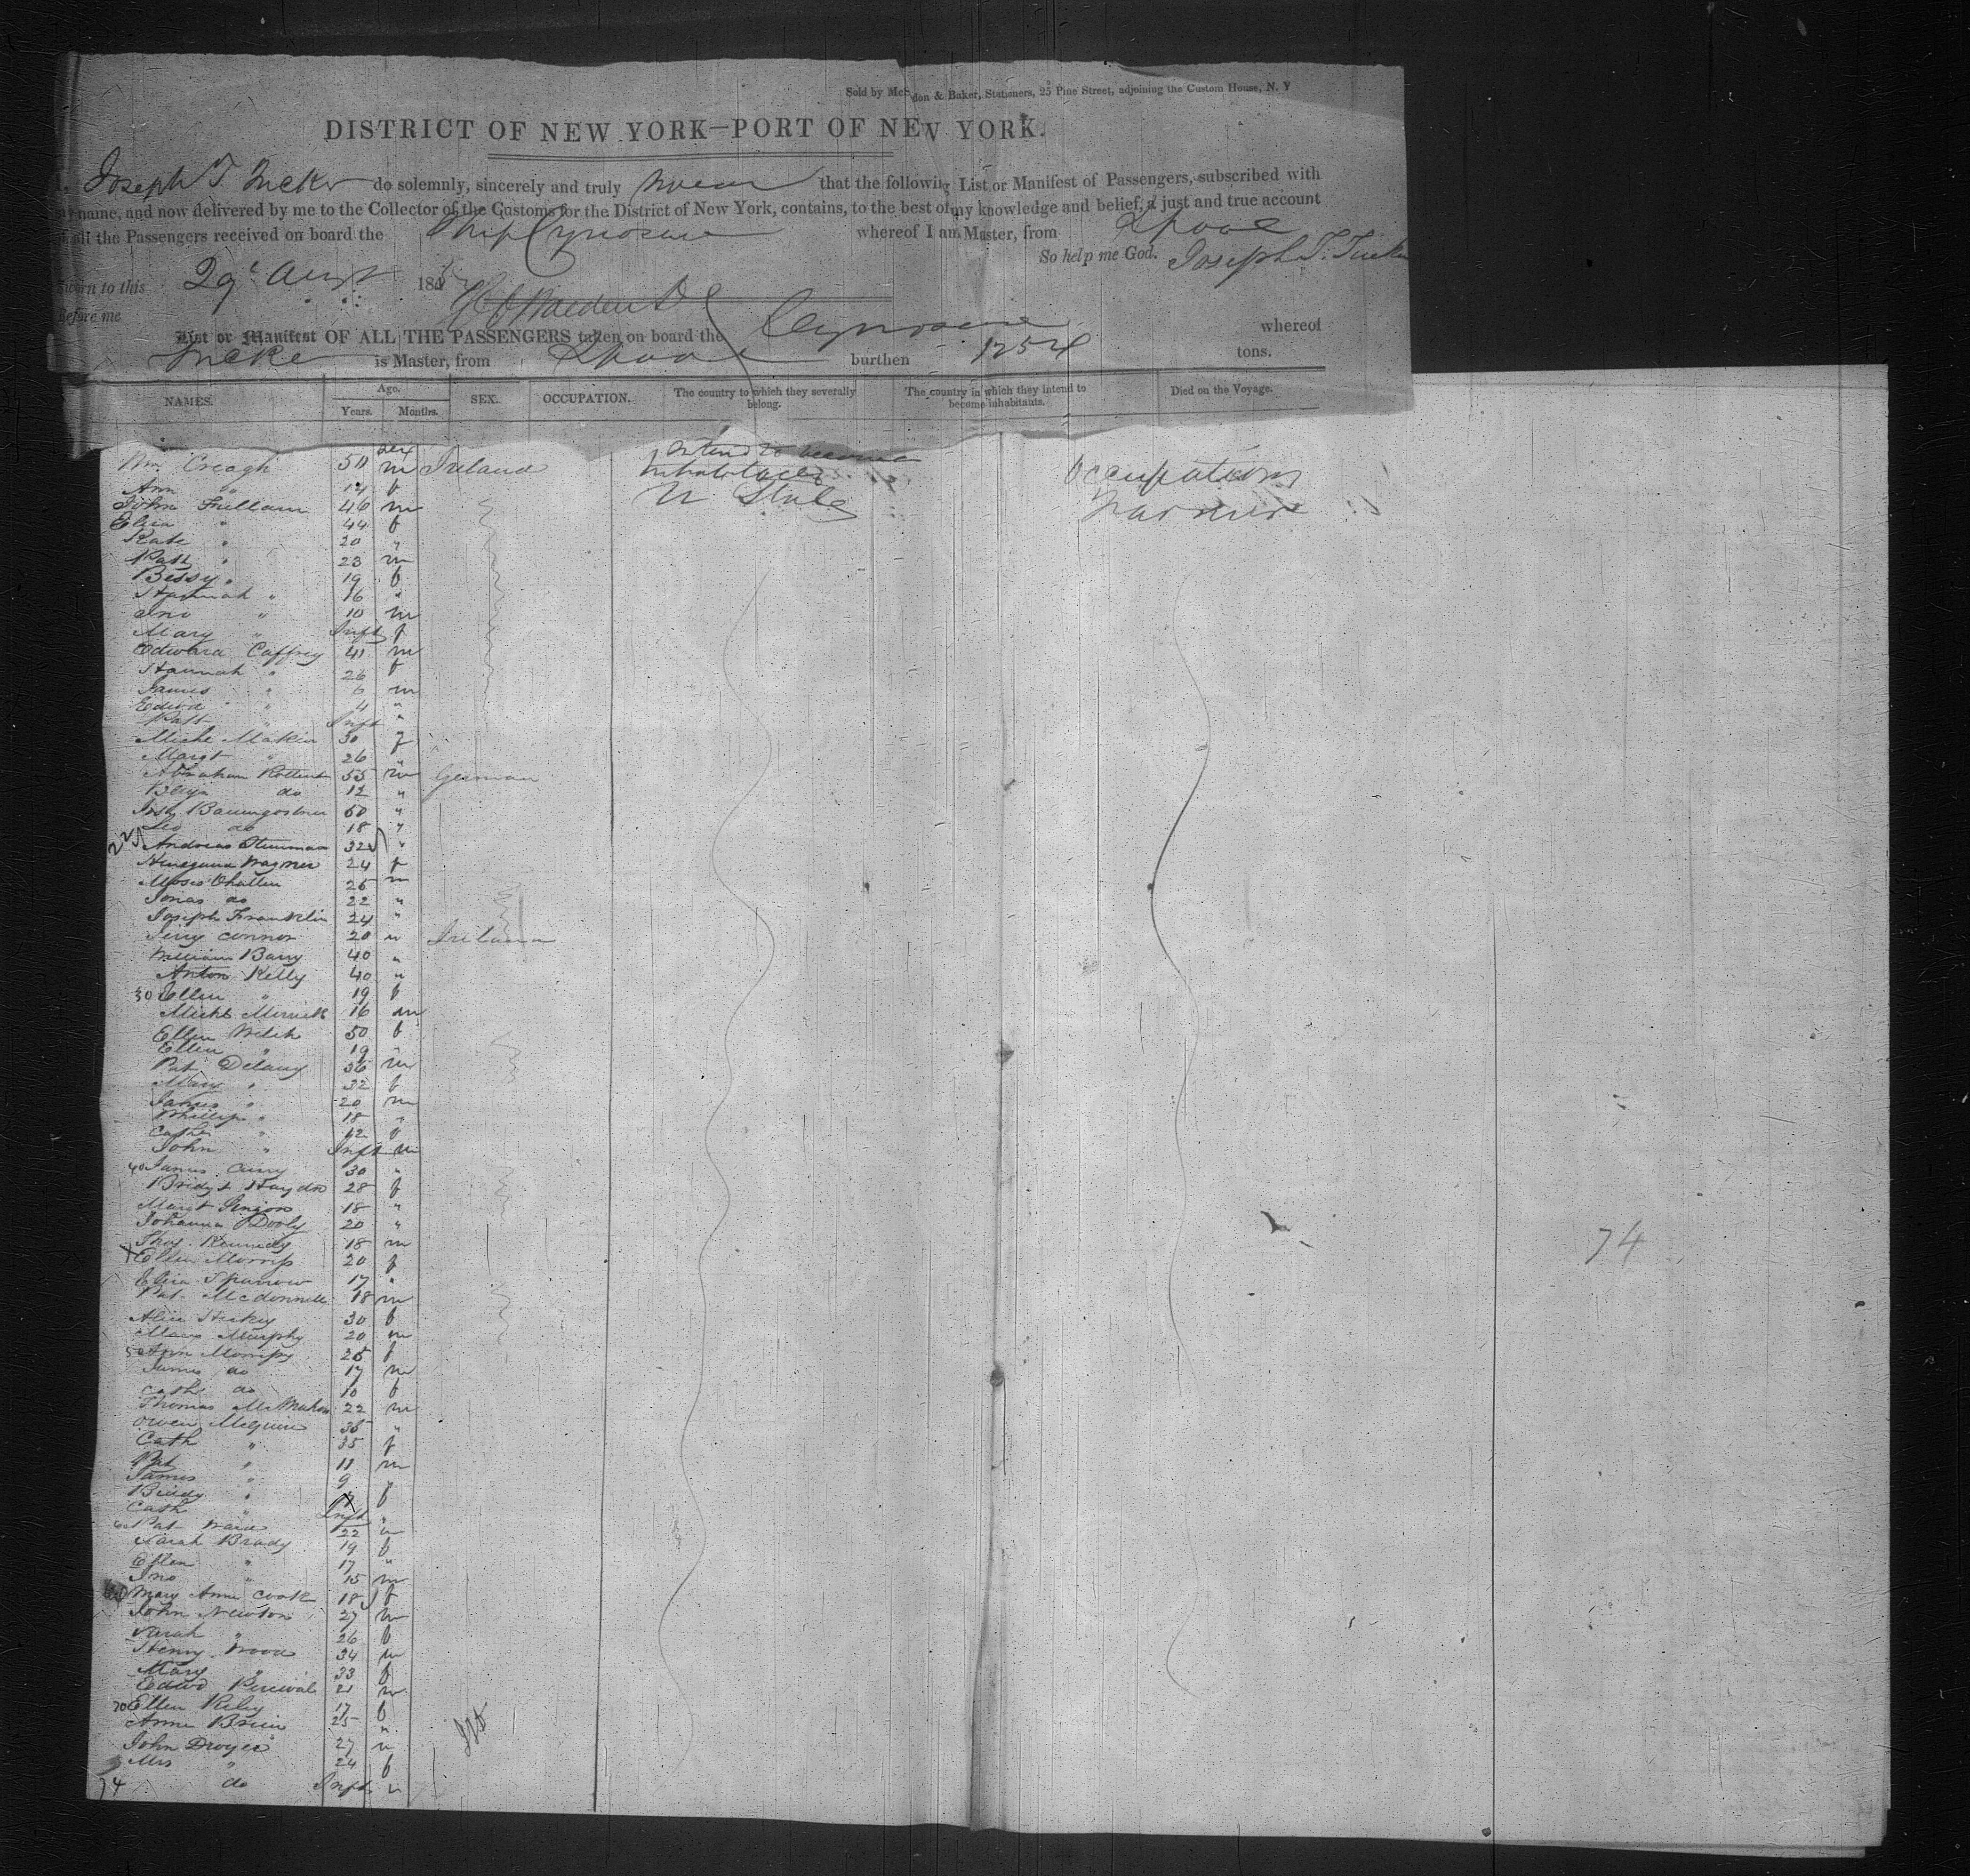 Sold by McS don & Baker, Stationers, 25 Pine Street, adjoining the Custom House, N. Y
DISTRICT OF NEW YORK—PORT OF NEW YORK.
Joseph T. Tucker do solemnly, sincerely and truly swear that the following List or Manifest of Passengers, subscribed with
my name, and now delivered by me to the Collector of the Customs for the District of New York, contains, to the best of my knowledge and belief, a just and true account
of all the Passengers received on board the Ship Cynosure whereof I am Master, from Lpool
So help me God. Joseph T. Tucker
Sworn to this 29 Augt 185
before me
List or Manifest OF ALL THE PASSENGERS taken on board the Cynosure whereof
Tucker is Master, from Lpool burthen 1254 tons.
NAMES. Age. Years. Months. SEX. OCCUPATION. The country to which they severally belong. The country in which they intend to become inhabitants. Died on the Voyage.
Sex Intend to become Inhabitants Occupation
Wm Creagh 50 m Ireland U. States Farmers
Ann " 14 f
John Fullam 46 m
Eliza " 44 f
Kate " 20 "
Patk " 23 m
Bessy " 19 f
Hannah " 16 "
Jno " 10 m
Mary " Inft f
Edward Caffrey 41 m
Hannah " 26 f
James " 6 m
Edwd " 4 "
Patt " Inft "
Michl Makin 30 f
Margt " 26 "
Abraham 55 m German
Benjn do 12 "
Josh Baumgostner 50 "
Leo do 18 "
Andreas 32 "
Wagner 24 f
Moses 25 m
Jonas do 22 "
Joseph Franklin 24 "
Jerry Connor 20 " Ireland
William Barry 40 "
Anton Kelly 40 "
30 Ellen " 19 f
Michl Merrick 16 m
Ellen Welch 50 f
Ellen " 19 "
Pat Delany 36 m
Mary " 32 f
James " 20 m
Phillip " 18 "
Cathe " 12 f
John " Inft m
40 James Curry 30 "
Bridgt Haydn 28 f
Margt 18 "
Johanna Dooly 20 "
Thos Kennedy 18 m
Ellen Morriss 20 f
Eliza Sparrow 17 "
Pat McDonnell 18 m
Alice Hickey 30 f
Murphy 20 m
50 Ann Morriss 25 f
James do 17 m
Cathe do 10 f
Thomas McMahon 22 m
Owen McGuire 35 "
Cath " 35 f
Pat " 11 m
James " 9 "
Biddy " f
Cath " Inft "
60 Pat Ward 22 m
Sarah Brady 19 f
Ellen " 17 "
Jno " 15 m
Mary Anne Cook 18 f
John Newton 27 m
Sarah " 26 f
Henry Wood 34 m
Mary " 33 f
Edwd Percival 21 m
70 Ellen Riley 17 f
Anne Brien 25 "
John Dwyer 27 m
Mrs " 24 f
74 do Inft
74